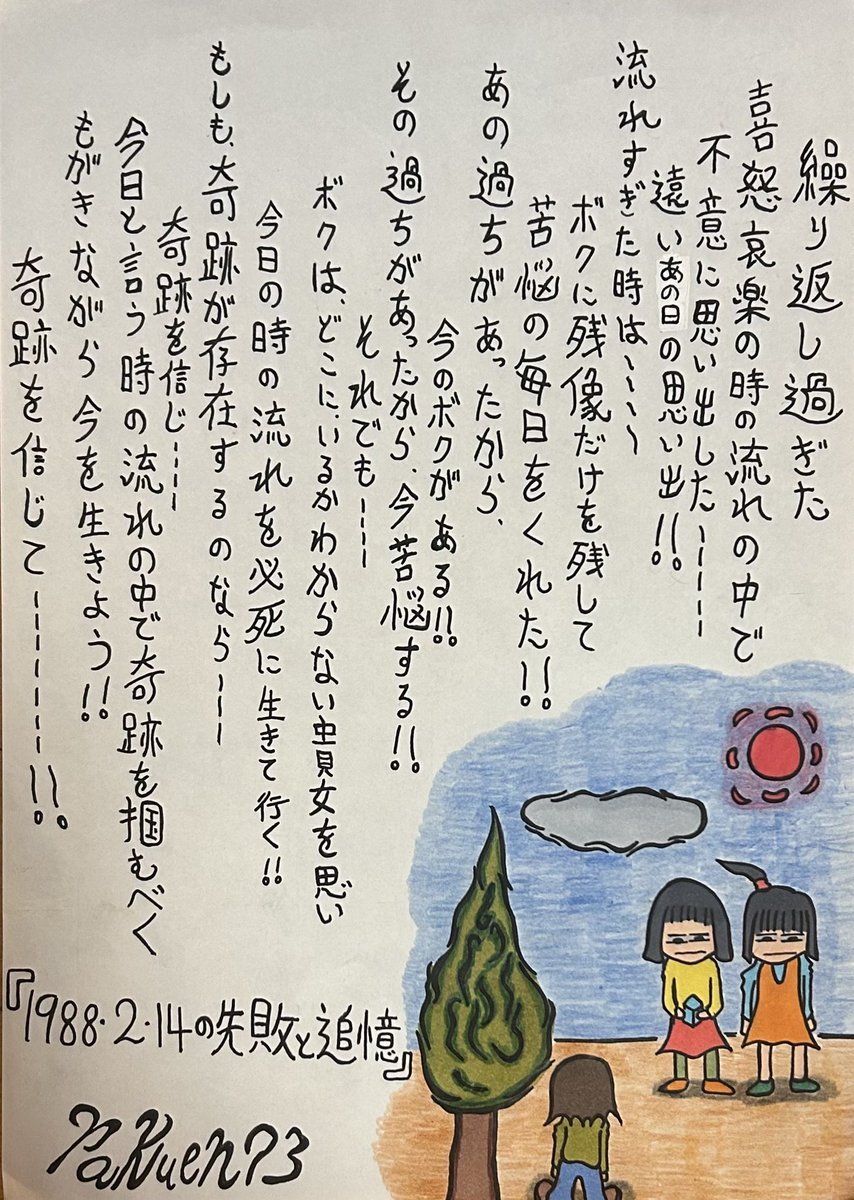 繰り返し過ぎた
喜怒哀楽の時の流れの中で
不意に思い出した----
遠いあの日の思い出!!
流れすぎた時は----
ボクに残像だけを残して
苦悩の毎日をくれた!!
あの過ちがあったから、
今のボクがある!!
その過ちがあったから、今苦悩する!!
それでも----
ボクは、どこに、いるかわからない貴女を思い
今日の時の流れを必死に生きて行く!!
もしも、奇跡が存在するのなら---
奇跡を信じ----
今日と言う時の流れの中で奇跡を掴むべく
もがきながら今を生きよう!!
奇跡を信じて-------!!
『1988・2・14の失敗と追憶』